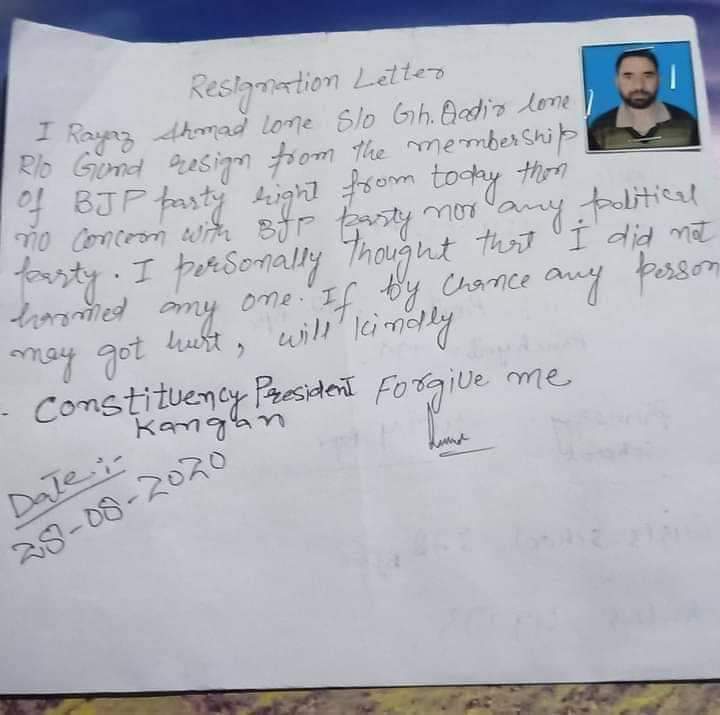 Resignation Letter
I Rayaz Ahmad lone S/o Gh. Qadir lone
R/o Gund resign from the membership
of BJP party right from today then
no concern with BJP party nor any political
party. I personally thought that I did not
harmed any one. If by chance any person
may got hurt, will kindly
Forgive me
- Constituency President
Kangan
Date:-
28-08-2020